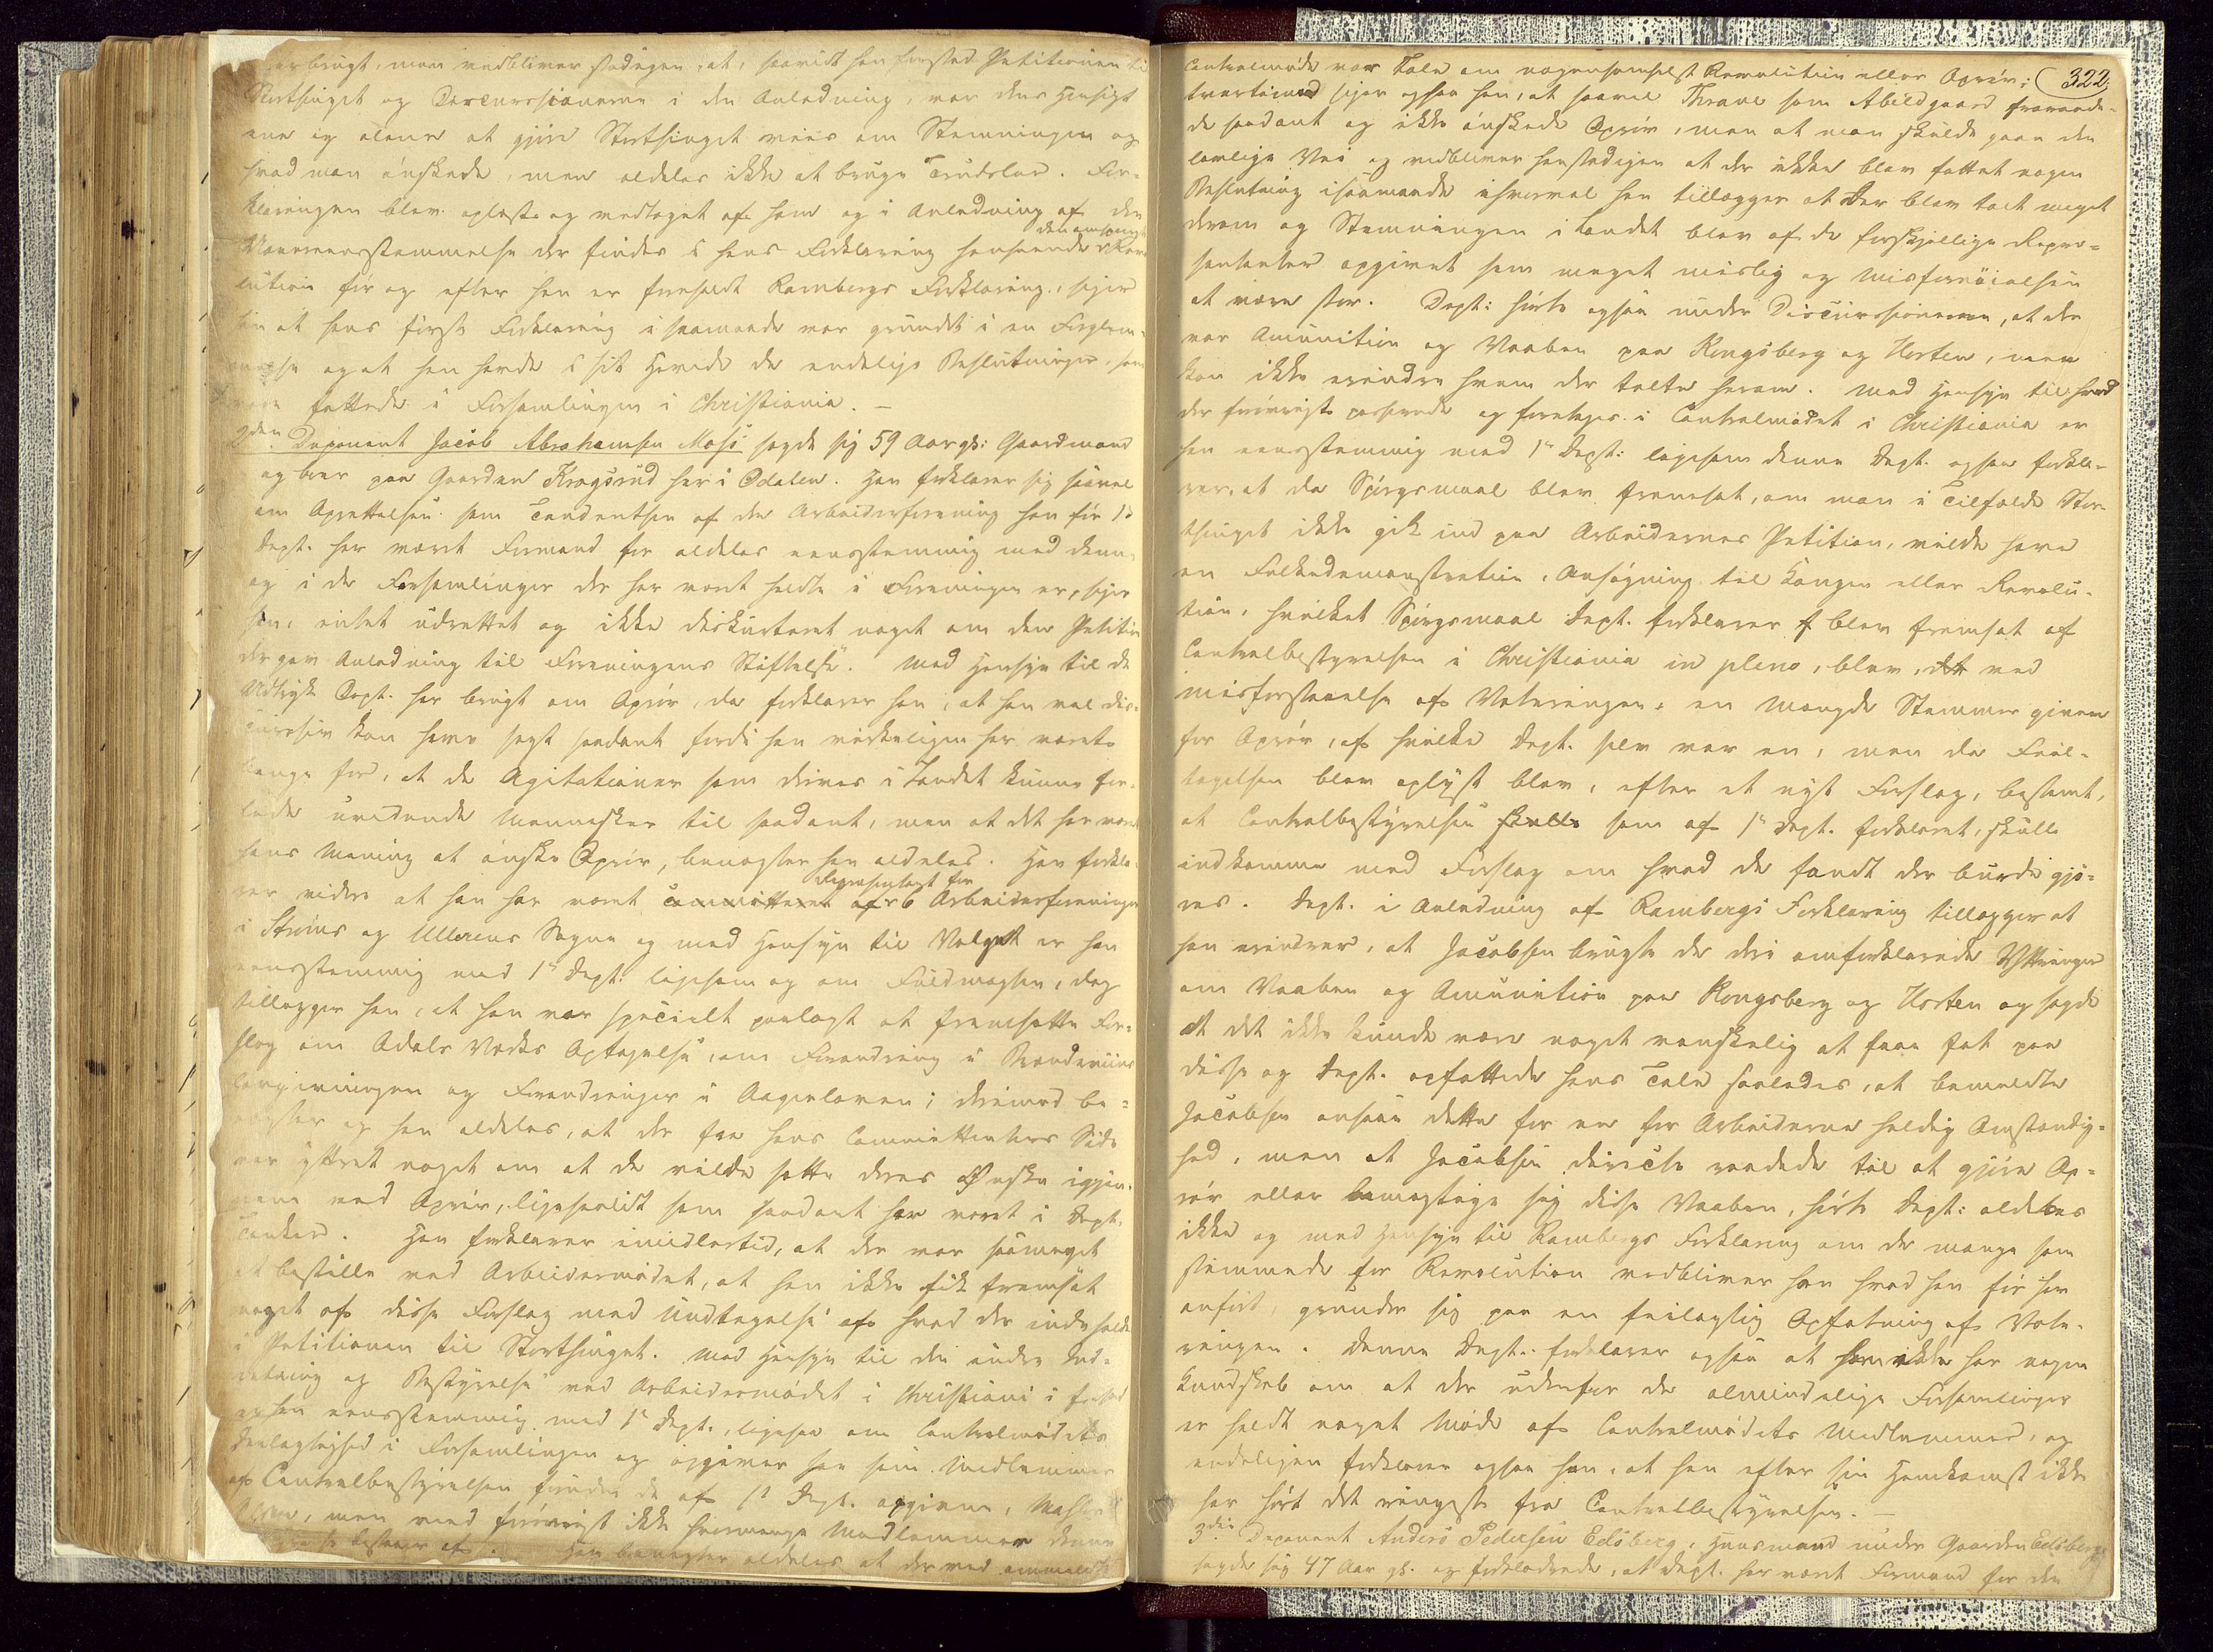 brugt, men vedbliver stadigen, at, saavidt han forstod Petitionen til
Storthinget og Discurssionerne i den Anledning, var dens Hensigt
ene og alene at gjøre Storthinget viis om Stemningen og
hvad man ønskede, men aldeles ikke at bruge Trudsler. For-
klaringen blev oplæst og vedtaget af ham og i Anledning af den
Uoverensstemmelse der findes i hans Forklaring henseende den omspurgte Revo
lution før og efter han er foreholdt Rambergs Forklaring, siger
han at hans første Forklaring i saamaade var grundet i en Forglem-
melse og at han havde i sit Hoved de endelige Beslutninger, som
vare fattede i Forsamlingen i Christiania. —
2den Deponent Jacob Abrahamsen Mosi sagde sig 59 Aar gl: Gaardmand
og boer paa Gaarden Kragsrud her i Odalen. Han forklarer sig saavel
om Oprettelsen som Tendentsen af den Arbeiderforening han før 1ste
Dept. har været Formand for aldeles eensstemmig med denne
og i de Forsamlinger der har været holdte i Foreningen er, siger
han, intet udrettet og ikke diskuteret noget om den Petition
der gav Anledning til Foreningens Stiftelse. Med Hensyn til de
Udtryk Dept. har brugt om Oprør, da forklarer han, at han vel dis-
cursiv kan have sagt saadant fordi han virkeligen har været
bange for, at de Agitationer som drives i Landet kunne for-
lede uvidende Mennesker til saadant, men at det har været
hans Mening at ønske Oprør, benægter han aldeles. Han forkla-
rer videre at han har været committeret af Repræsentant for 6 Arbeiderforeninger
i Strøms og Ullerens Sogne og med Hensyn til Valget er han
eensstemmig med 1ste Dept. ligesom og om Fuldmagten, dog
tillægger han, at han var specielt paalagt at fremsætte For-
slag om Odals Værks Optagelse, om Forandring i Brændeviins
lovgivningen og Forandringer i Aagerloven; derimod be-
nægter og han aldeles, at der fra hans Committenters Side
var yttret noget om at de vilde sætte deres Ønske igjen-
nem ved Oprør, ligesaalidt som saadant har været i Dept.
Tanker. Han forklarer imidlertid, at der var saameget
at bestille ved Arbeidermødet, at han ikke fik fremsat
noget af disse Forslag med Undtagelse af hvad der indeholdes
i Petitionen til Storthinget. Med Hensyn til den indre Ind-
retning og Bestyrelse ved Arbeidermødet i Christiania i
er han eensstemmig med 1ste Dept., ligesaa om Centralmødets
Deelagtighed i Forsamlingen og opgiver han som Medlemmer
af Centralbestyrelsen foruden de af 1ste Dept. opgivne,
men veed forøvrigt ikke hvormange Medlemmer denne
bestaaer af. Han benægter aldeles at der ved ommeldte
322
Centralmøde var Tale om nogensomhelst Revolution eller Oprør;
tvertimod siger ogsaa han, at saavel Thrane som Abildgaard fraraade-
de saadant og ikke ønskede Oprør, men at man skulde gaae den
lovlige Vei og vedbliver han stadigen at der ikke blev fattet nogen
Beslutning isaamaade ihvorvel han tillægger at der blev talt meget
derom og Stemningen i Landet blev af de forskjellige Repræ-
sentanter opgivet som meget mislig og Misfornøielsen
at være stor. Dept: hørte ogsaa under Discurssionerne, at der
var Amunition og Vaaben paa Kongsberg og Horten, men
kan ikke erindre hvem der talte herom. Med Hensyn til hvad
der forøvrigt passerede og foretoges i Centralmødet i Christiania er
han eensstemmig med 1ste Dept: ligesom denne Dept. ogsaa forkla-
rer, at da Spørgsmaal blev fremsat, om man i Tilfælde Stor-
thinget ikke gik ind paa Arbeidernes Petition, vilde have
en Folkedemonstration, Ansøgning til Kongen eller Revolu-
tion, hvilket Spørgsmaal Dept. forklarer blev fremsat af
Centralbestyrelsen i Christiania in pleno, blev, ved
misforstaaelse af Voteringen, en Mængde Stemmer givne
for Oprør, af hvilke Dept. selv var en, men da Feil-
tagelsen blev oplyst blev, efter et nyt Forslag, bestemt,
at Centralbestyrelsen skulle som af 1ste Dept. forklaret, skulle
indkomme med Forslag om hvad de fandt der burde gjø-
res. Dept. i Anledning af Rambergs Forklaring tillægger at
han erindrer, at Jacobsen brugte de deri omforklarede Yttringer
om Vaaben og Amunition paa Kongsberg og Horten og sagde
at det ikke kunde være noget vanskelig at faae fat paa
disse og Dept. opfattede hans Tale saaledes, at bemeldte
Jacobsen ansaae dette for en for Arbeiderne heldig Omstændig-
hed, men at Jacobsen directe raadede til at gjøre Op-
rør eller bemægtige sig disse Vaaben, hørte Dept: aldeles
ikke og med Hensyn til Rambergs Forklaring om de mange som
stemmede for Revolution vedbliver han hvad han før har
anført, grunder sig paa en feilagtig Opfatning af Vote-
ringen. Denne Dept. forklarer ogsaa at han ikke har nogen
Kundskab om at der udenfor de almindelige Forsamlinger
er holdt noget Møde af Centralmødets Medlemmer, og
endeligen forklarer ogsaa han, at han efter sin Hjemkomst ikke
har hørt det ringeste fra Centralbestyrelsen. —
3die Deponent Anders Pedersen Edsberg, Huusmand under Gaarden Edsberg
sagde sig 47 Aar gl. og forklarede, at Dept. har været Formand for den